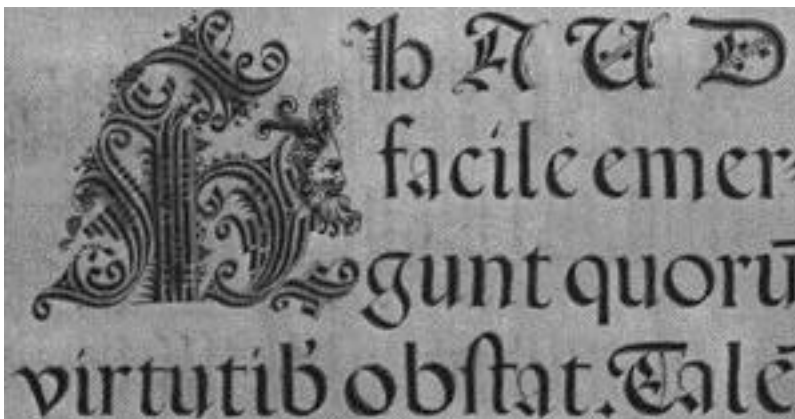 HHAUD
facile emer-
gunt quorū
virtutib' obſtat. Talē